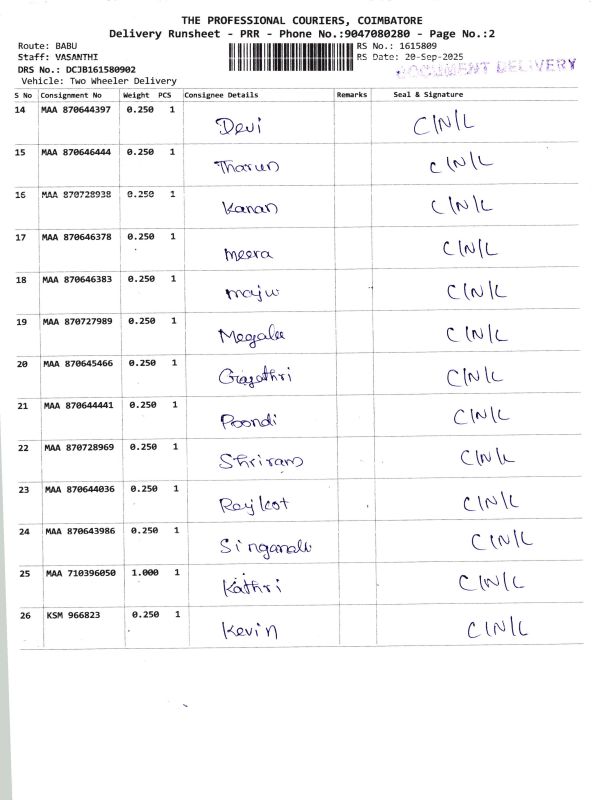 THE PROFESSIONAL COURIERS, COIMBATORE
Delivery Runsheet - PRR - Phone No.:9047080280 - Page No.:2
Route: BABU RS No.: 1615809
Staff: VASANTHI RS Date: 20-Sep-2025
DRS No.: DCJB161580902 DOCUMENT DELIVERY
Vehicle: Two Wheeler Delivery
S No Consignment No Weight PCS Consignee Details Remarks Seal & Signature
14 MAA 870644397 0.250 1 Devi C/N/L
15 MAA 870646444 0.250 1 Tharun C/N/L
16 MAA 870728938 0.250 1 Kanan C/N/L
17 MAA 870646378 0.250 1 meera C/N/L
18 MAA 870646383 0.250 1 maju C/N/L
19 MAA 870727989 0.250 1 Megala C/N/L
20 MAA 870645466 0.250 1 Gayathri C/N/L
21 MAA 870644441 0.250 1 Poondi C/N/L
22 MAA 870728969 0.250 1 Shriram C/N/L
23 MAA 870644036 0.250 1 Rajkot C/N/L
24 MAA 870643986 0.250 1 C/N/L
25 MAA 710396050 1.000 1 Kathri C/N/L
26 KSM 966823 0.250 1 Kevin C/N/L